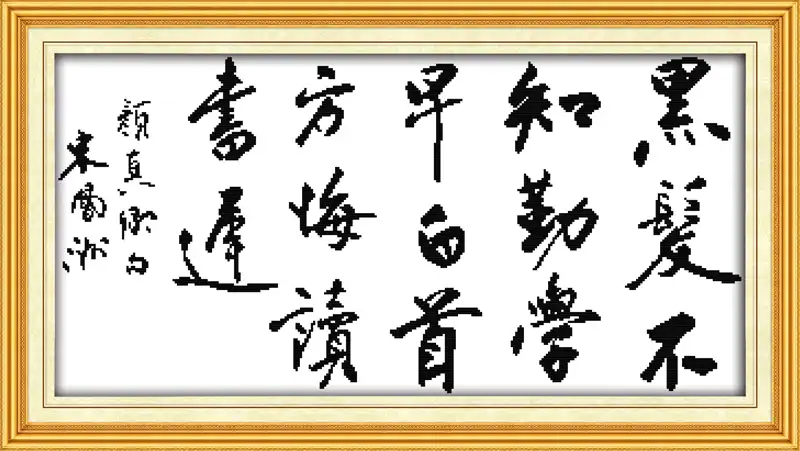 黑髮不
知勤學
早白首
方悔讀
書遲
顏真卿句